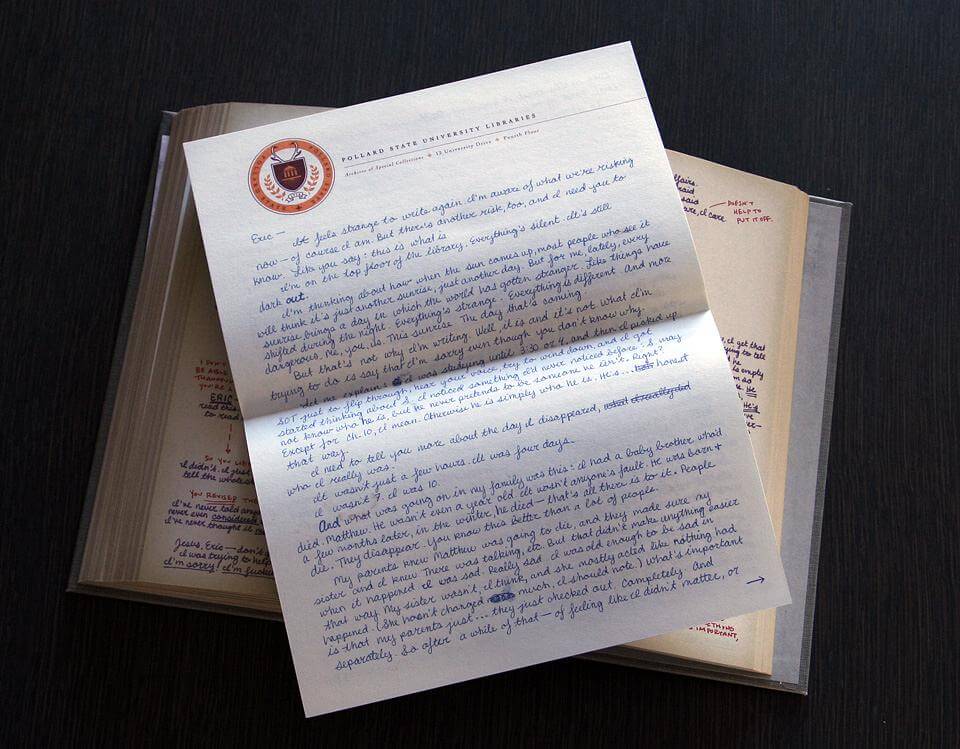 POLLARD STATE UNIVERSITY LIBRARIES
Archives & Special Collections 13 University Drive Fourth Floor
Eric —
It feels strange to write again. I'm aware of what we're risking
now — of course I am. But there's another risk, too, and I need you to
know. Like you say: this is what is.
I'm on the top floor of the library. Everything's silent. It's still
dark out.
I'm thinking about how when the sun comes up, most people who see it
will think it's just another sunrise, just another day. But for me, lately, every
sunrise brings a day in which the world has gotten stranger. Like things have
shifted during the night. Everything's strange. Everything is different. And more
dangerous. Me, you, us. This sunrise. The day that's coming.
But that's not why I'm writing. Well, it is and it's not. What I'm
trying to do is say that I'm sorry even though you don't know why.
Let me explain: I was studying until 3:30 or 4, and then I picked up
SOT just to flip through, hear your voice, try to wind down, and I got
started thinking about S. I noticed something I'd never noticed before: S. may
not know who he is, but he never pretends to be someone he isn't. Right?
Except for Ch. 10, I mean. Otherwise he is simply who he is. He's... honest
that way.
I need to tell you more about the day I disappeared,
who I really was.
It wasn't just a few hours. It was four days.
I wasn't 7. I was 10.
And what was going on in my family was this: I had a baby brother who'd
died. Matthew. He wasn't even a year old. It wasn't anyone's fault. He was born &
a few months later, in the winter, he died — that's all there is to it. People
die. They disappear. You know this better than a lot of people.
My parents knew Matthew was going to die, and they made sure my
sister and I knew. There was talking, etc. But that didn't make anything easier
when it happened. I was sad. Really sad. I was old enough to be sad in
that way. My sister wasn't, I think, and she mostly acted like nothing had
happened. (She hasn't changed much, I should note.) What's important
is that my parents just... they just checked out. Completely. And
separately. So after a while of that — of feeling like I didn't matter, or
→
ffairs.
said
said
are, I care
DOESN'T
HELP TO
PUT IT OFF.
I get that
to tell
is empty
so
He's
IMPORTANT,
ERIC
read this
to read
I didn't. I just
tell the whole
YOU REVISED THE
I've never told any
never even considered
I've never thought it co
Jesus, Eric — don't
I was trying to help
I'm sorry. I'm